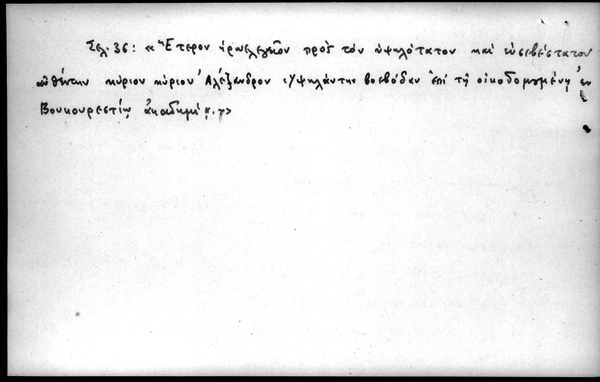 Σελ. 36: «Ἕτερον ἡρωελεγεῖον πρὸς τὸν ὑψηλότατον καὶ εὐσεβέστατον
αὐθέντην κύριον κύριον Ἀλέξανδρον Ὑψηλάντην βοεβόδαν ἐπὶ τῇ οἰκοδομουμένῃ ἐν
Βουκουρεστίῳ ἀκαδημίᾳ.»